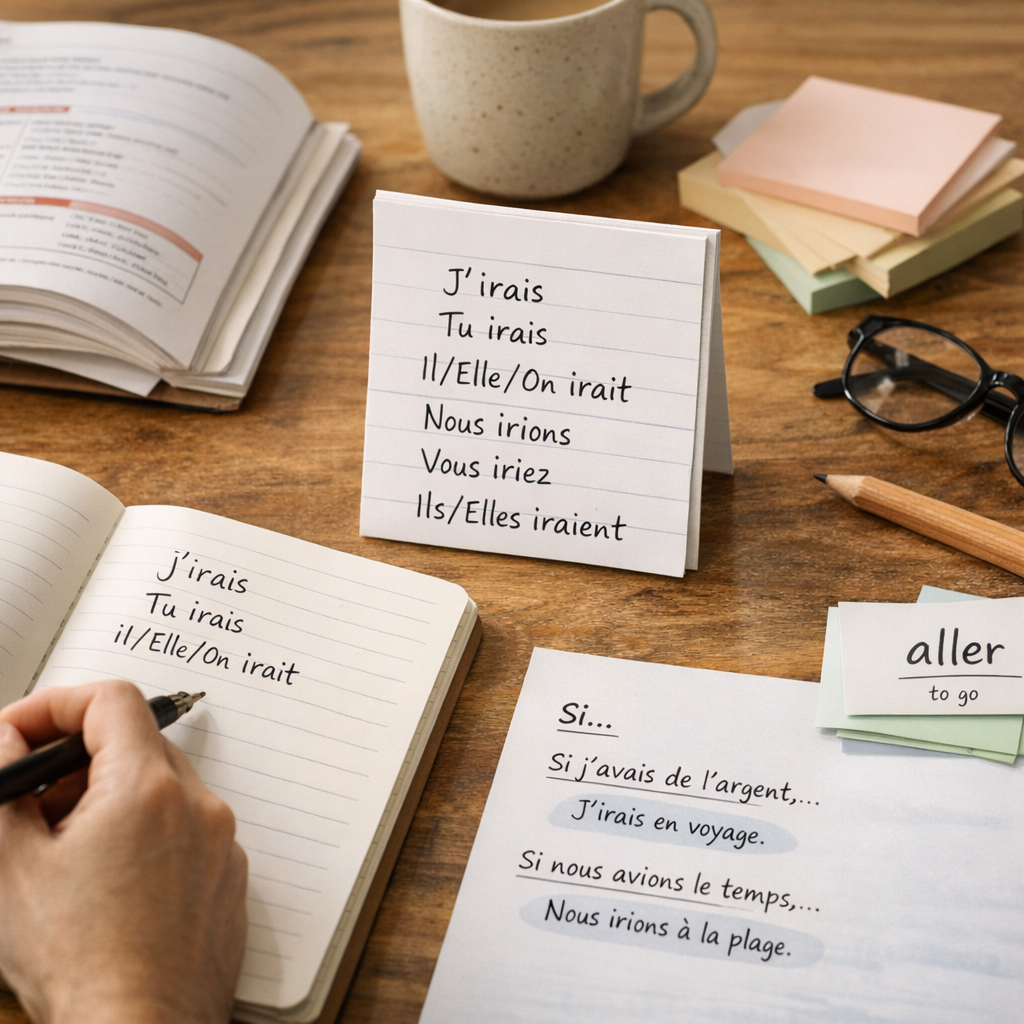 J'irais
Tu irais
Il/Elle/On irait
Nous irions
Vous iriez
Ils/Elles iraient
j'irais
Tu irais
il/Elle/On irait
aller
to go
Si...
Si j'avais de l'argent,...
J'irais en voyage.
Si nous avions le temps,...
Nous irions à la plage.